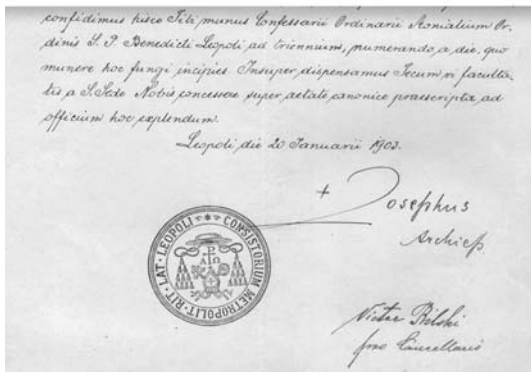 confidimus hisce Titi munus Confessarii Ordinarii Monialium Or-
dinis S. P. Benedicti Leopoli ad triennium, numerando a die, quo
munere hoc fungi incipies. Insuper dispensamus Tecum vi faculta-
tis a S. Sede Nobis concessae super aetate canonice praescripta ad
officium hoc explendum.
Leopoli die 20 Januarii 1903.
+ Josephus
Archiep.
CONSISTORIUM METROPOLIT·RIT·LAT·LEOPOLI
Victor Bilski
pro Cancellario